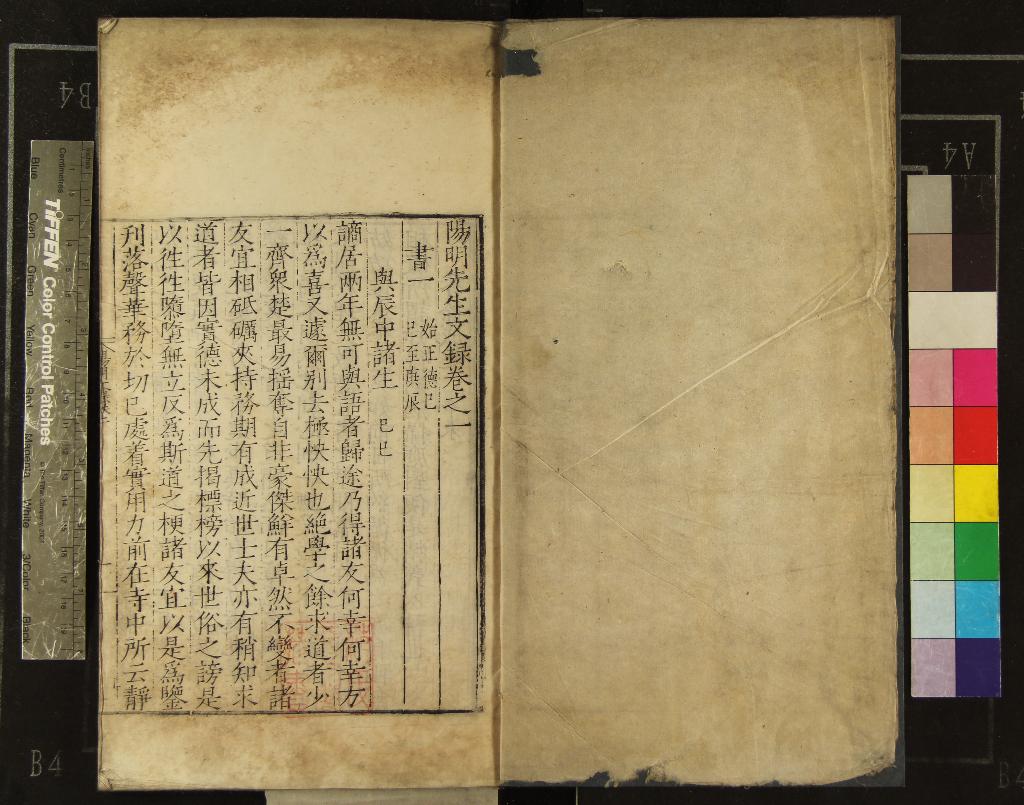 陽明先生文録卷之一
書一
始正德己
巳至庚辰
與辰中諸生
己巳
謫居兩年無可與語者歸途乃得諸友何幸何幸方
以爲喜又遽爾别去極怏怏也絶學之餘求道者少
一齊衆楚最易揺奪自非豪傑鮮有卓然不變者諸
友宜相砥礪夾持務期有成近世士夫亦有稍知求
道者皆因實德未成而先揭標榜以來世俗之謗是
以徃徃隳墮無立反爲斯道之梗諸友宜以是爲鑒
刋落聲華務於切己處着實用力前在寺中所云靜
B4
A4
B4
Inches
Centimetres
TIFFEN Color Control Patches
Blue
Cyan
Green
Yellow
Red
Magenta
White
3/Color
Black